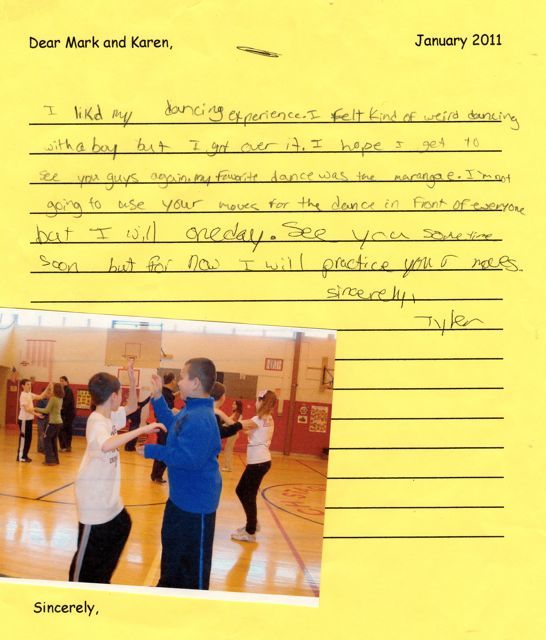 Dear Mark and Karen,
January 2011
I likd my dancing experience. I felt kind of weird dancing
with a boy but I got over it. I hope I get to
see you guys again. my favorite dance was the marangae. I'm not
going to use your moves for the dance in front of everyone
but I will oneday. See you sometime
soon but for now I will practice your moves.
sincerely,
Tyler
Sincerely,